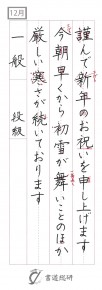 12月
謹んで新年のお祝いを申し上げます
今朝早くから初雪が舞いことのほか
厳しい寒さが続いております
一般 段級
書道総研